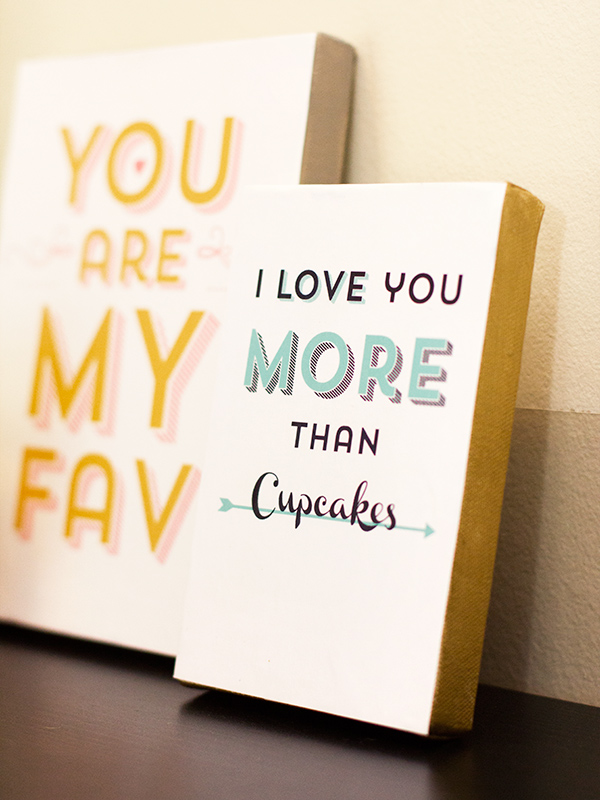 YOU
ARE
MY
FAV
I LOVE YOU
MORE
THAN
Cupcakes